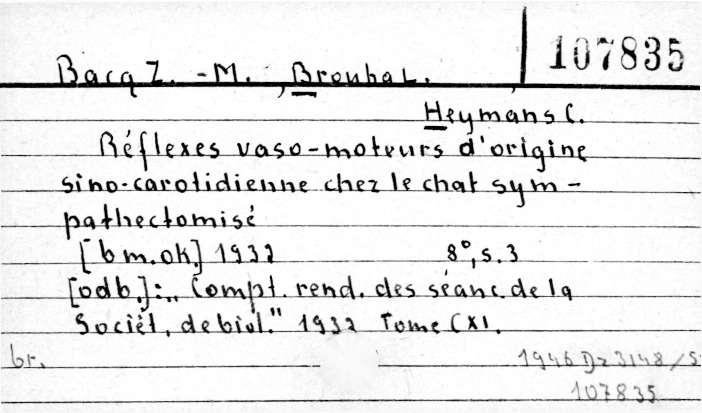 107835
Bacq Z.-M., Brouha L.
Heymans C.
Réflexes vaso-moteurs d'origine
sino-carotidienne chez le chat sym-
pathectomisé
[b m.ok.] 1932 8°, s. 3
[odb.]: „Compt. rend. des séanc. de la
Sociét. de biol." 1932 Tome CXI.
br. 1946 Dz 3148/S
107835